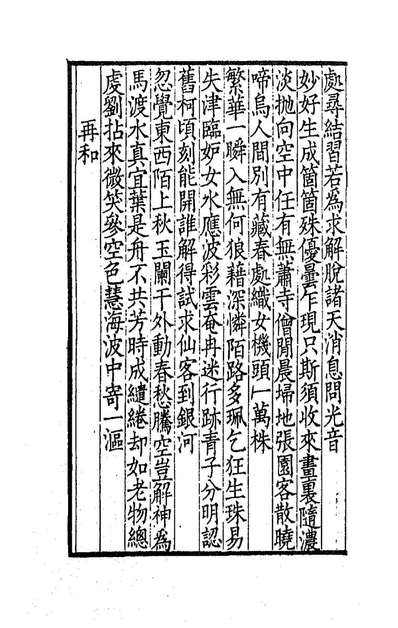 處尋結習若為求解脫諸天消息問光音
妙好生成箇箇姝優曇乍現只斯須收來畫裏隨濃
淡拋向空中任有無蕭寺僧閒晨埽地張園客散曉
啼烏人間別有藏春處織女機頭一萬株
繁華一瞬入無何狼藉深憐陌路多珮乞狂生珠易
失津臨妒女水應波彩雲奄冉迷行跡青子分明認
舊柯頃刻能開誰解得試求仙客到銀河
忽覺東西陌上秋玉闌干外動春愁騰空豈解神為
馬渡水真宜葉是舟不共芳時成繾綣却如老物總
虔劉拈來微笑參空色慧海波中寄一漚
再和